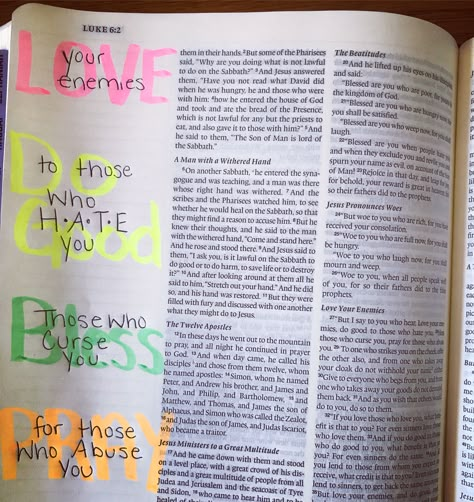 LUKE 6:2
LOVE
your
enemies
Do
to those
who
H•A•T•E
you
Good
Bless
Those who
Curse
You
PRAY
for those
Who Abuse
You
them in their hands. 2But some of the Pharisees
said, "Why are you doing what is not lawful
to do on the Sabbath?" 3And Jesus answered
them, "Have you not read what David did
when he was hungry, he and those who were
with him: 4how he entered the house of God
and took and ate the bread of the Presence,
which is not lawful for any but the priests to
eat, and also gave it to those with him?" 5And
he said to them, "The Son of Man is lord of
the Sabbath."
A Man with a Withered Hand
6On another Sabbath, he entered the syna-
gogue and was teaching, and a man was there
whose right hand was withered. 7And the
scribes and the Pharisees watched him, to see
whether he would heal on the Sabbath, so that
they might find a reason to accuse him. 8But he
knew their thoughts, and he said to the man
with the withered hand, "Come and stand here."
And he rose and stood there. 9And Jesus said to
them, "I ask you, is it lawful on the Sabbath to
do good or to do harm, to save life or to destroy
it?" 10And after looking around at them all he
said to him, "Stretch out your hand." And he did
so, and his hand was restored. 11But they were
filled with fury and discussed with one another
what they might do to Jesus.
The Twelve Apostles
12In these days he went out to the mountain
to pray, and all night he continued in prayer
to God. 13And when day came, he called his
disciples and chose from them twelve, whom
he named apostles: 14Simon, whom he named
Peter, and Andrew his brother, and James and
John, and Philip, and Bartholomew, 15and
Matthew, and Thomas, and James the son of
Alphaeus, and Simon who was called the Zealot,
16and Judas the son of James, and Judas Iscariot,
who became a traitor.
Jesus Ministers to a Great Multitude
17And he came down with them and stood
on a level place, with a great crowd of his dis-
ciples and a great multitude of people from all
Judea and Jerusalem and the seacoast of Tyre
and Sidon, 18who came to hear him and to be
The Beatitudes
20And he lifted up his eyes on his disciples,
and said:
"Blessed are you who are poor, for yours is
the kingdom of God.
21"Blessed are you who are hungry now, for
you shall be satisfied.
"Blessed are you who weep now, for you shall
laugh.
22"Blessed are you when people hate you
and when they exclude you and revile you and
spurn your name as evil, on account of the Son
of Man! 23Rejoice in that day, and leap for joy,
for behold, your reward is great in heaven; for
so their fathers did to the prophets.
Jesus Pronounces Woes
24"But woe to you who are rich, for you have
received your consolation.
25"Woe to you who are full now, for you shall
be hungry.
"Woe to you who laugh now, for you shall
mourn and weep.
26"Woe to you, when all people speak well
of you, for so their fathers did to the false
prophets.
Love Your Enemies
27"But I say to you who hear, Love your ene-
mies, do good to those who hate you, 28bless
those who curse you, pray for those who abuse
you. 29To one who strikes you on the cheek, offer
the other also, and from one who takes away
your cloak do not withhold your tunic either.
30Give to everyone who begs from you, and from
one who takes away your goods do not demand
them back. 31And as you wish that others would
do to you, do so to them.
32"If you love those who love you, what bene-
fit is that to you? For even sinners love those
who love them. 33And if you do good to those
who do good to you, what benefit is that to
you? For even sinners do the same. 34And if
you lend to those from whom you expect to
receive, what credit is that to you? Even sinners
lend to sinners, to get back the same amount.
35But love your enemies, and do good, and